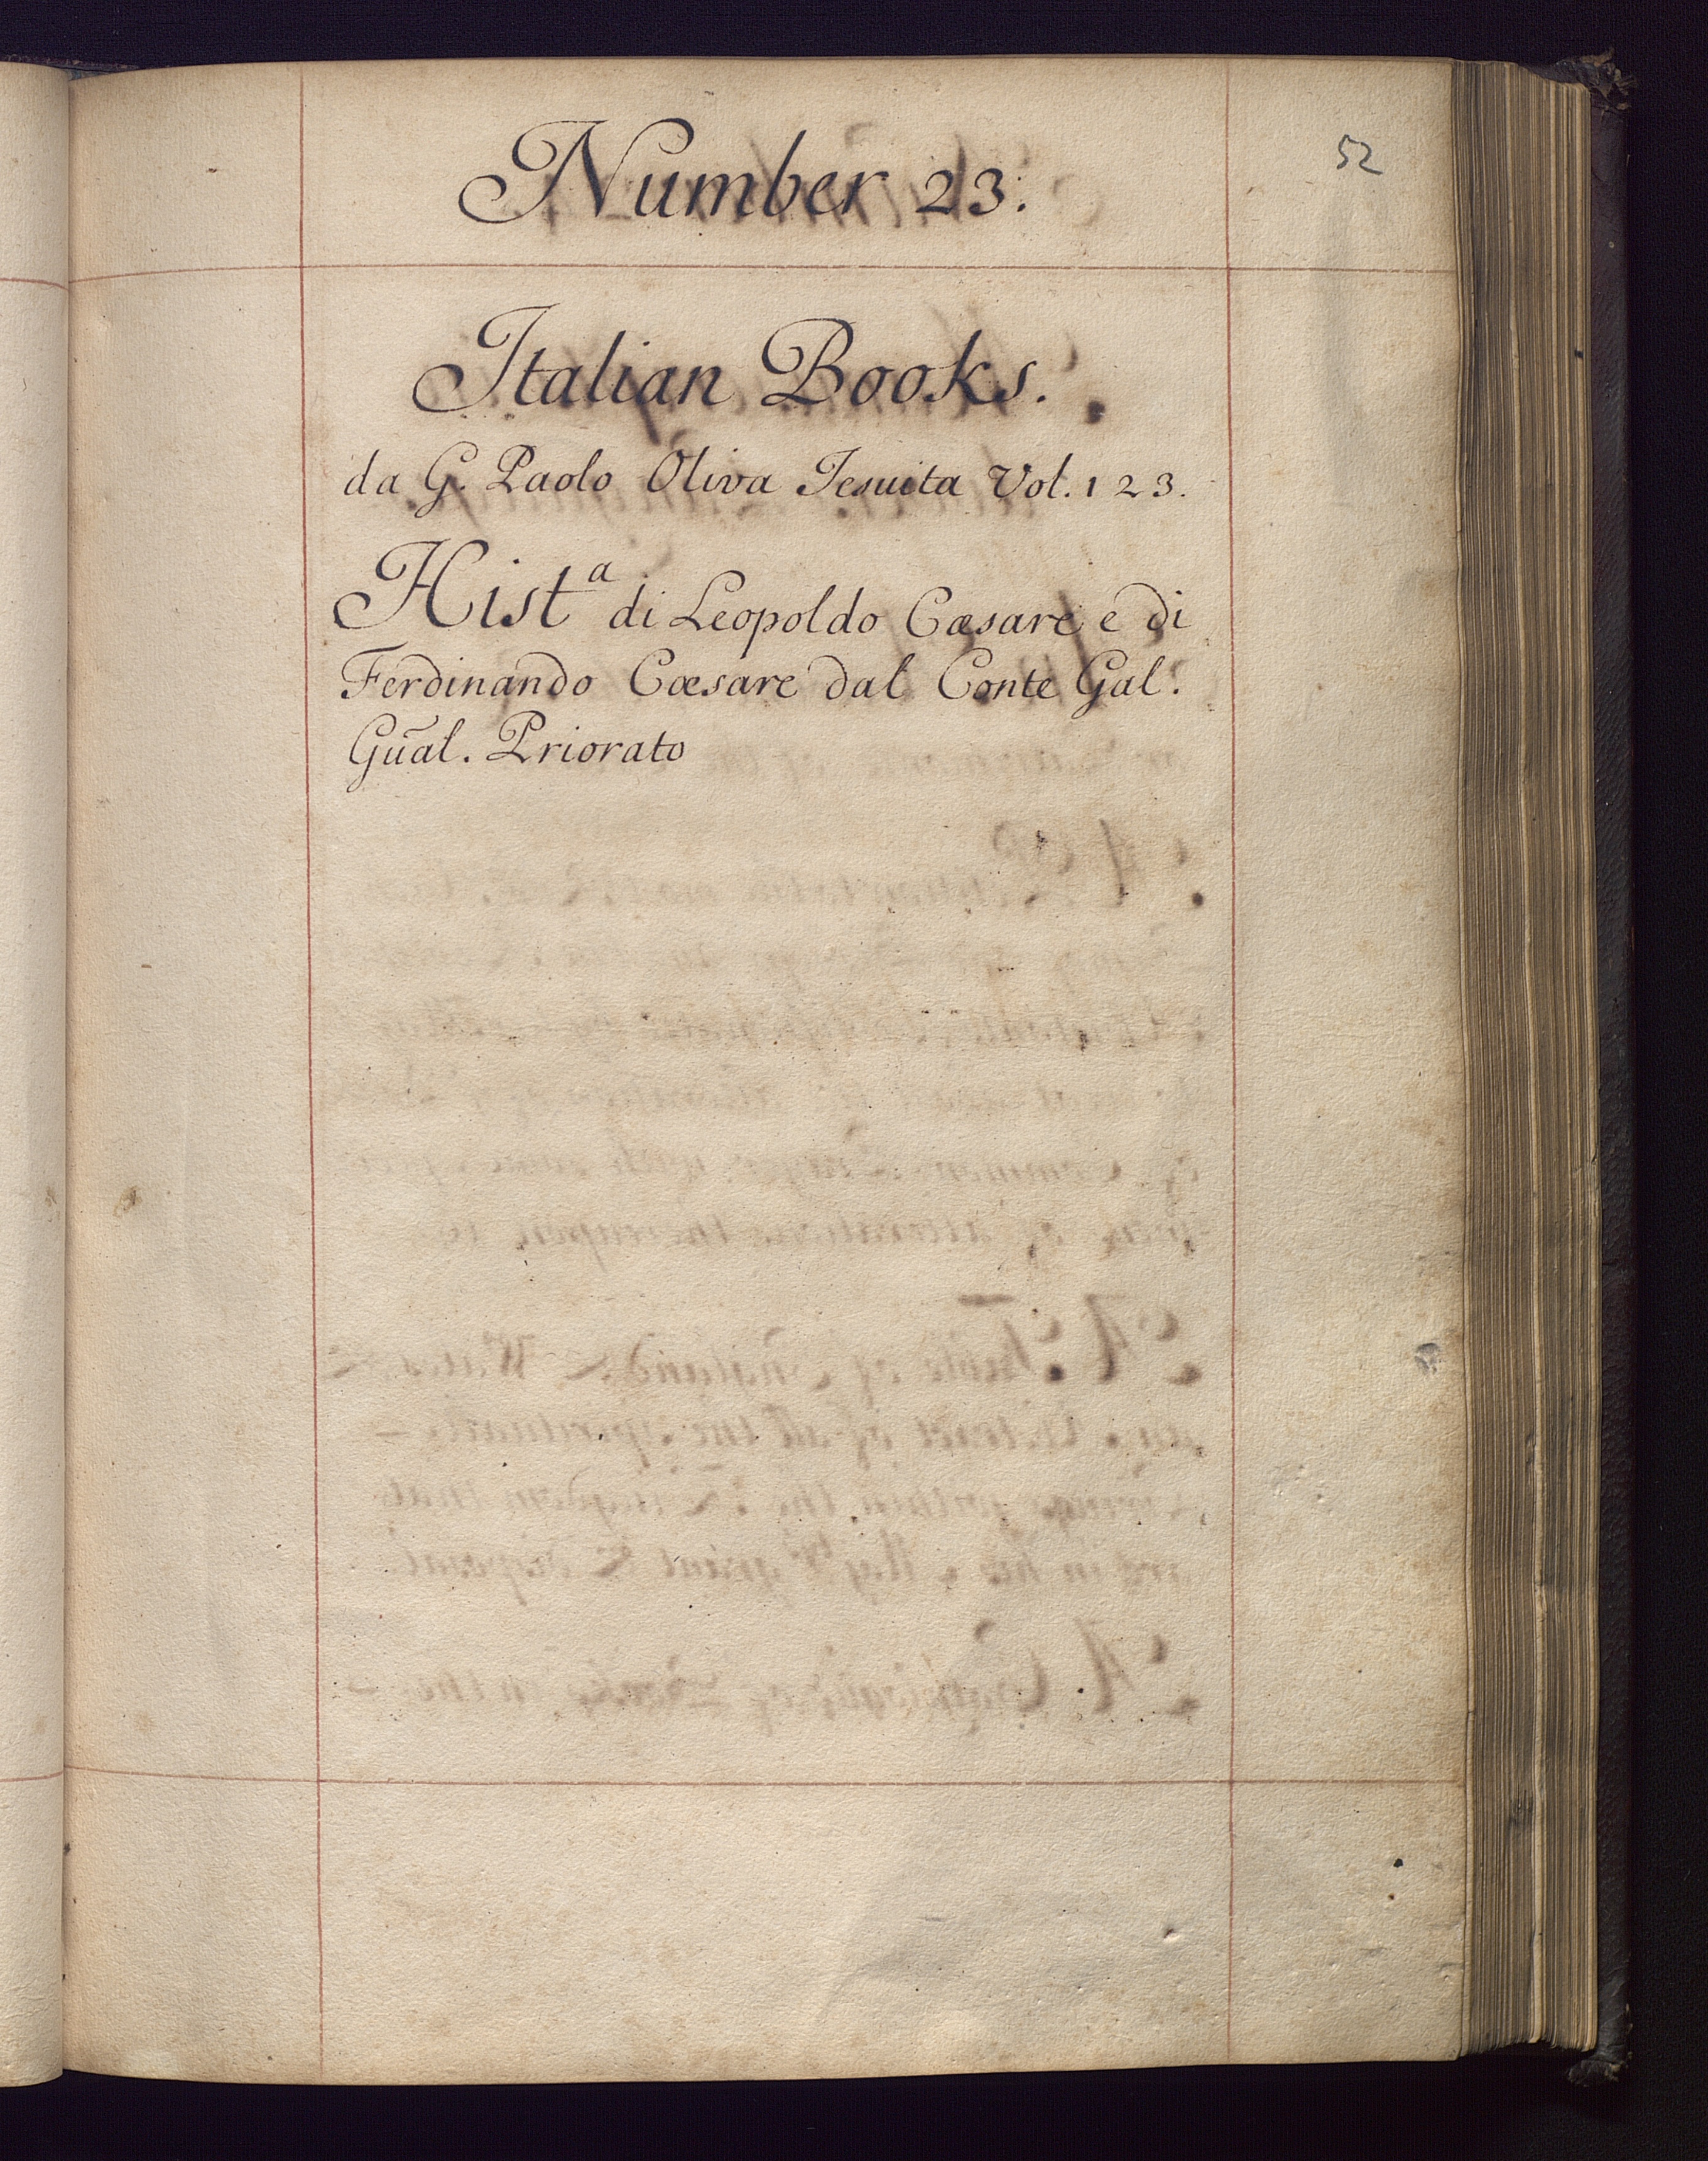 52
Number 23.
Italian Books.
da G. Paolo Oliva Iesuita Vol. 1 2 3.
Hist^a di Leopoldo Cæsare e di
Ferdinando Cæsare dal Conte Gal.
Gūal. Priorato